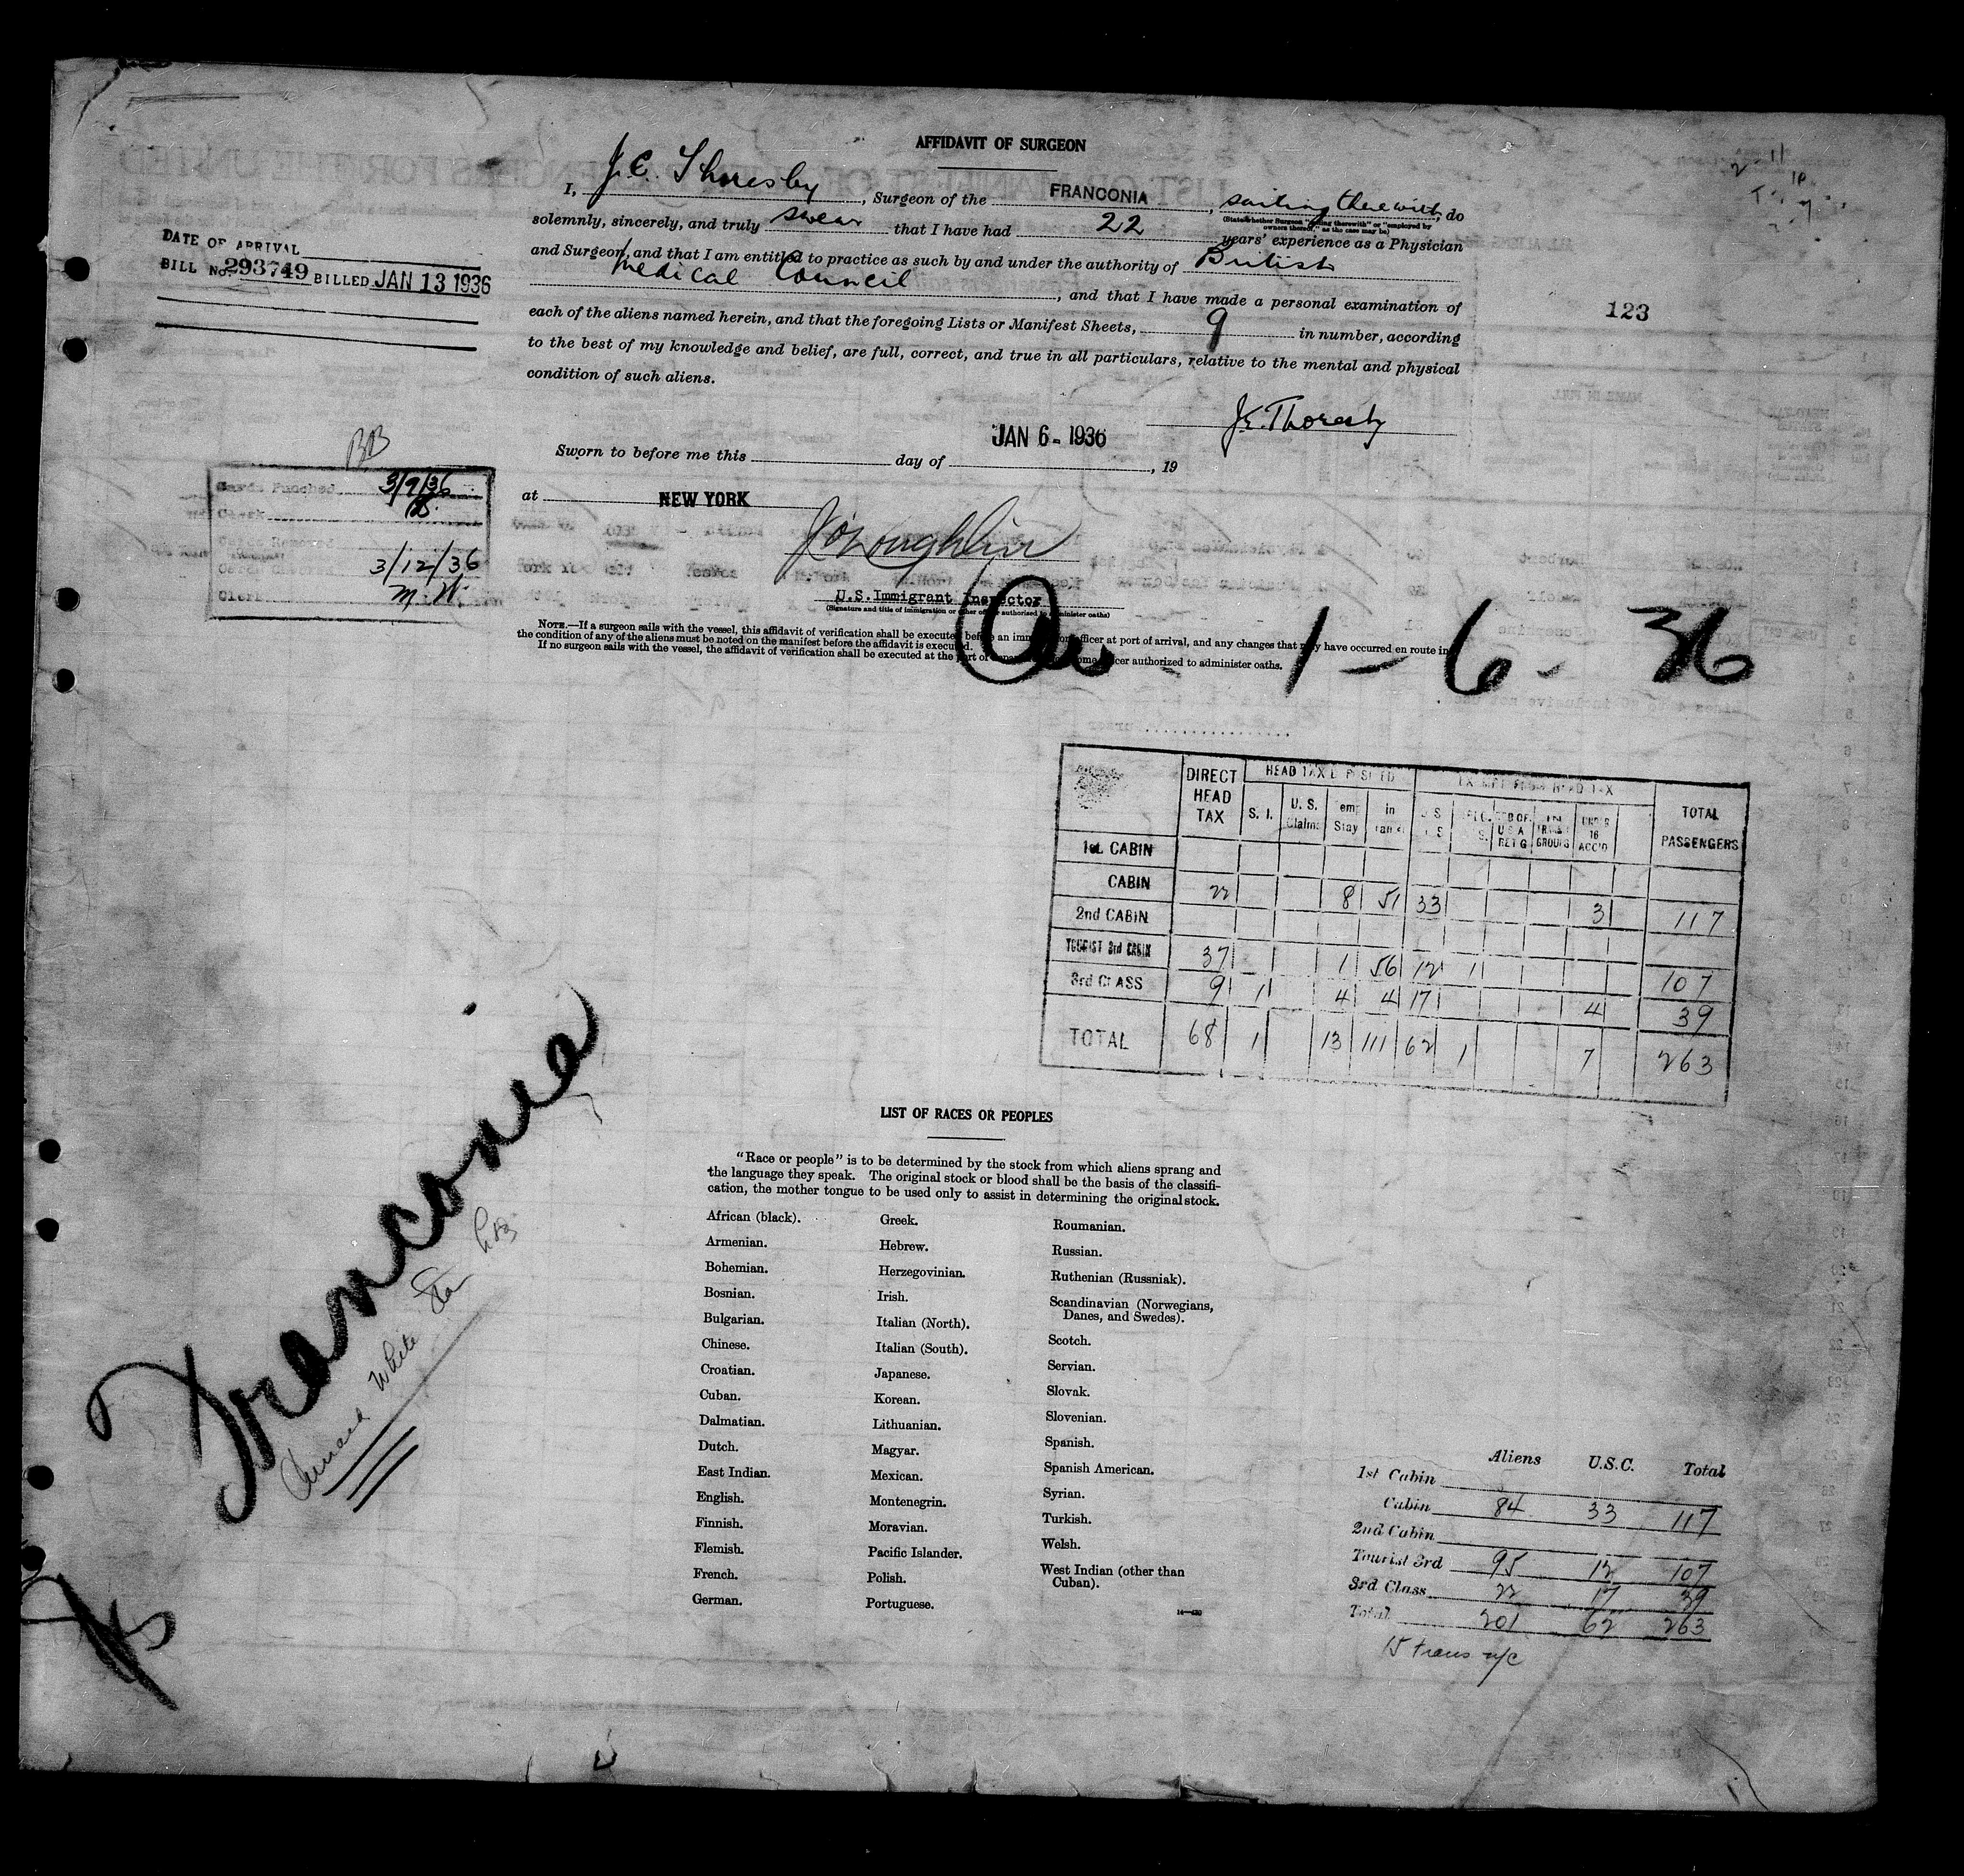 AFFIDAVIT OF SURGEON
I, J. E. Thoresby, Surgeon of the FRANCONIA, sailing therewith, do
(State whether Surgeon "sailing therewith" or "employed by
owners thereof," as the case may be)
solemnly, sincerely, and truly swear that I have had 22 years' experience as a Physician
and Surgeon, and that I am entitled to practice as such by and under the authority of British
Medical Council, and that I have made a personal examination of
each of the aliens named herein, and that the foregoing Lists or Manifest Sheets, 9 in number, according
to the best of my knowledge and belief, are full, correct, and true in all particulars, relative to the mental and physical
condition of such aliens.
J.E. Thoresby
JAN 6 - 1936
Sworn to before me this day of , 19
at NEW YORK
J O'Loughlin
U.S. Immigrant Inspector
(Signature and title of immigration or other officer authorized to administer oaths)
NOTE.—If a surgeon sails with the vessel, this affidavit of verification shall be executed before an immigration officer at port of arrival, and any changes that may have occurred en route in
the condition of any of the aliens must be noted on the manifest before the affidavit is executed.
If no surgeon sails with the vessel, the affidavit of verification shall be executed at the port of departure before some officer authorized to administer oaths.
DATE OF ARRIVAL
BILL No. 293749 BILLED JAN 13 1936
123
BB
Cards Punched 3/9/36
Clerk
3/12/36
Clerk M.W.
1-6-36
DIRECT HEAD TAX
HEAD TAX DEPOSITED
EXEMPT FROM HEAD TAX
TOTAL PASSENGERS
S. I. U. S. Claims Temp Stay in Trans
UNDER 16 ACC'D
1st CABIN
CABIN 22 8 51 33 3 117
2nd CABIN
TOURIST 3rd CABIN 37 1 56 12 1 107
3rd CLASS 9 1 4 4 17 4 39
TOTAL 68 1 13 111 62 1 7 263
Franconia
Cunard White Star
LIST OF RACES OR PEOPLES
"Race or people" is to be determined by the stock from which aliens sprang and
the language they speak. The original stock or blood shall be the basis of the classifi-
cation, the mother tongue to be used only to assist in determining the original stock.
African (black).
Armenian.
Bohemian.
Bosnian.
Bulgarian.
Chinese.
Croatian.
Cuban.
Dalmatian.
Dutch.
East Indian.
English.
Finnish.
Flemish.
French.
German.
Greek.
Hebrew.
Herzegovinian.
Irish.
Italian (North).
Italian (South).
Japanese.
Korean.
Lithuanian.
Magyar.
Mexican.
Montenegrin.
Moravian.
Pacific Islander.
Polish.
Portuguese.
Roumanian.
Russian.
Ruthenian (Russniak).
Scandinavian (Norwegians,
Danes, and Swedes).
Scotch.
Servian.
Slovak.
Slovenian.
Spanish.
Spanish American.
Syrian.
Turkish.
Welsh.
West Indian (other than
Cuban).
Aliens U.S.C. Total
1st Cabin
Cabin 84 33 117
2nd Cabin
Tourist 3rd 95 12 107
3rd Class 22 17 39
Total 201 62 263
15 trans